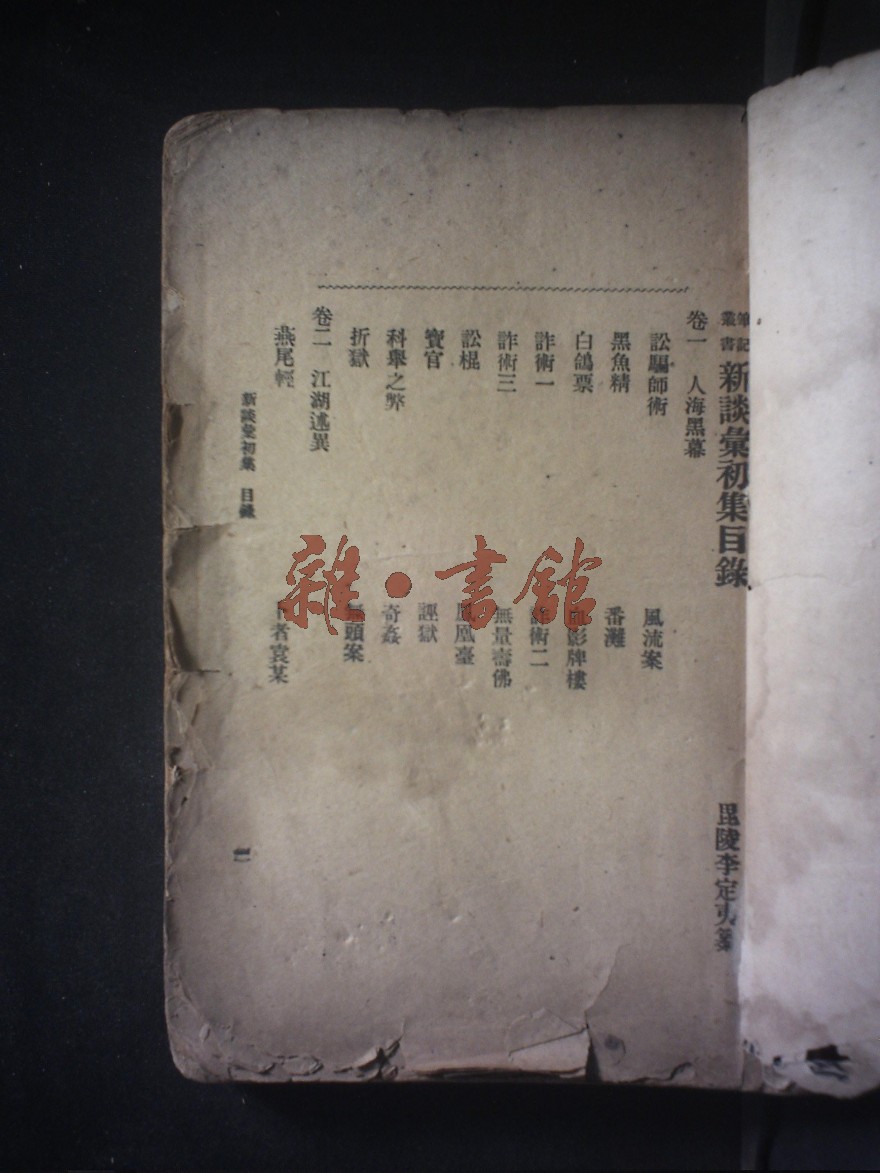 筆記叢書 新談彙初集目錄
毘陵李定夷纂
卷一 人海黑幕
訟騙師術 風流案
黑魚精 番灘
白鴿票 影牌樓
詐術一 詐術二
詐術三 無量壽佛
訟棍 鳳凰臺
寶官 誣獄
科舉之弊 奇姦
折獄 無頭案
卷二 江湖述異
燕尾輕 者袁某
新談彙初集 目錄
一
雜·書館